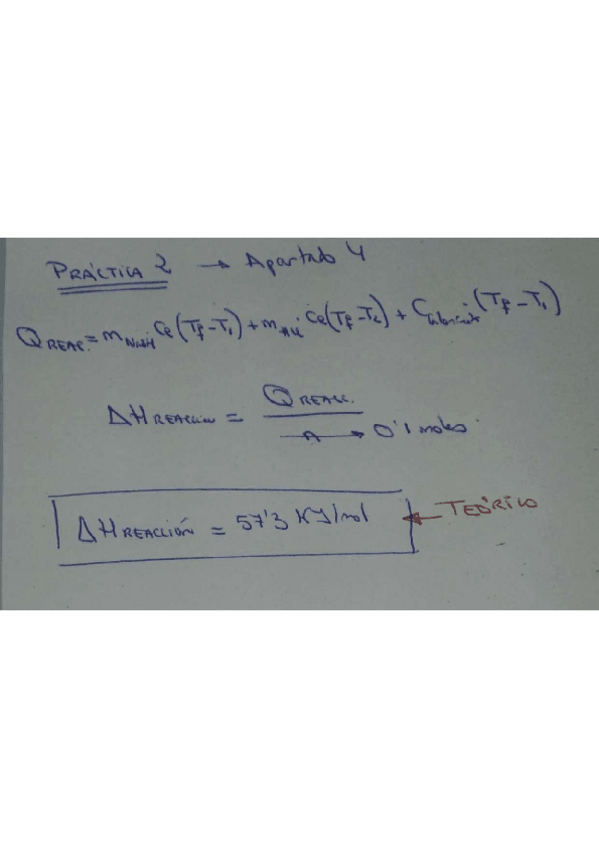 PRÁCTICA 2 → Apartado 4
Q REAC. = m NaOH · Ce (Tf - T1) + m HCl · Ce (Tf - T2) + C calorímetro · (Tf - T1)
ΔH REACCIÓN = Q REACC. / n → 0'1 moles.
ΔH REACCIÓN = 57'3 KJ/mol ← TEÓRICO